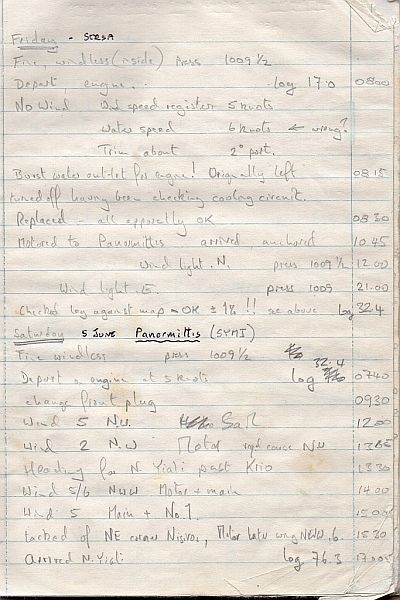 Friday - SESSA
Fine, windless (inside) press 1009 1/2
Depart, engine. log 17.0 0800
No Wind Wd speed register 5 knots
Water speed 6 knots ← wrong?
Trim about 2° port.
Burst water outlet for engine! Originally left 08.15
turned off having been checking cooling circuit.
Replaced - all apparently OK 08 30
Motored to Panormittis arrived anchored 10.45
Wind light. N. press 1009 1/2 12.00
Wind light. E. press 1009 21.00
Checked log against map = OK ± 1% !! see above log 32.4
Saturday 5 JUNE Panormittis (SYMI)
Fine windless press 1009 1/2
Depart on engine at 5 knots log 32.4 0740
change front plug 0930
Wind 5 NW. Sail 1200
Wind 2 N.W Motor course NW
Heading for N. Yiali past Krio 1330
Wind 5/6 NWW Motor + main 1400
Wind 5 Main + No.1. 1500
tacked off NE corner Nisiros, Motor later wind NWW. 6. 15 30
Arrived N. Yiali log 76.3 1700